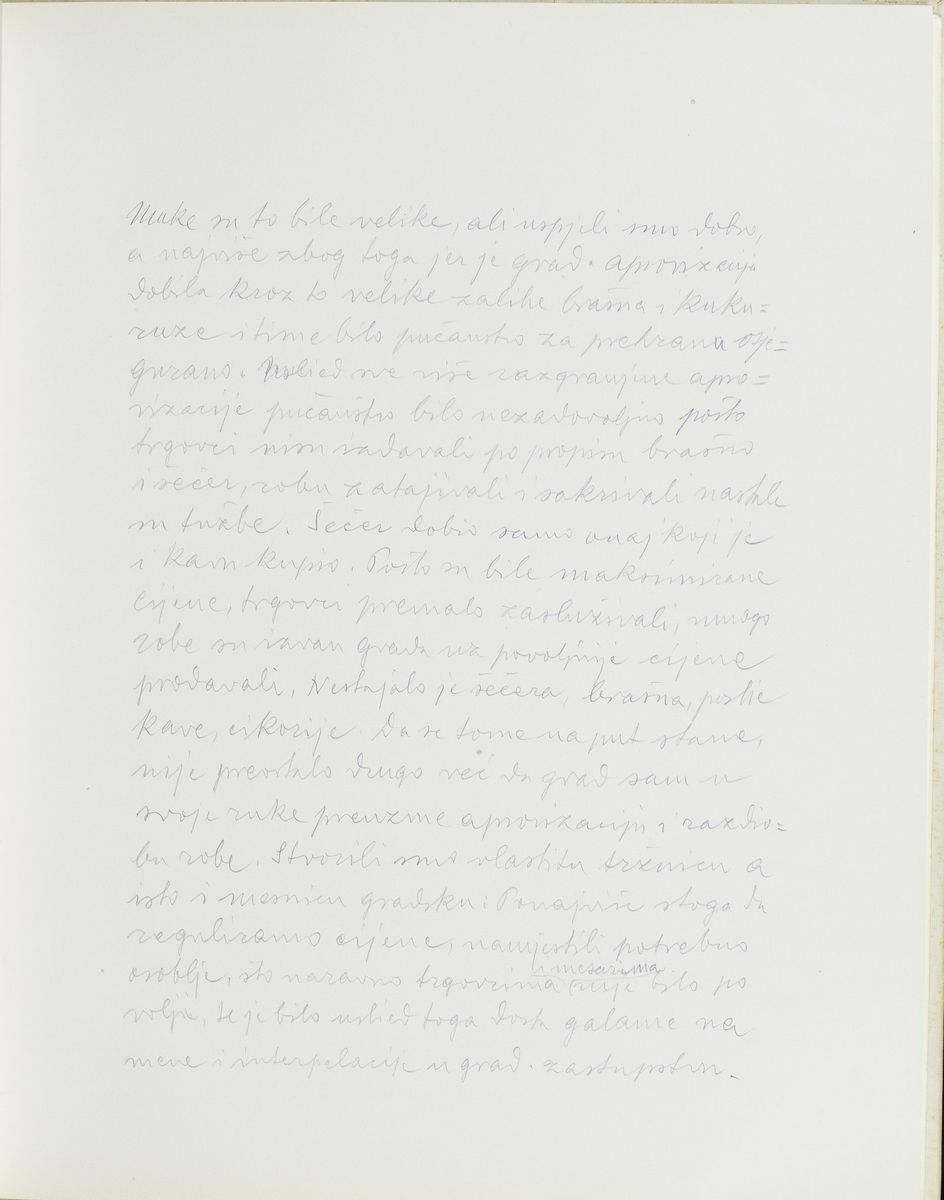 Muke su to bile velike, ali uspjeli smo dobro,
a najviše zbog toga jer je grad. aprovizacija
dobila kroz to velike zalihe brašna i kuku=
ruze i time bilo pučanstvo za prehranu osje=
gurano. Uslied sve više razgranjene apro=
vizacije pučanstvo bilo nezadovoljno pošto
trgovci nisu izdavali po propisu brašno
i šećer, robu zatajivali i sakrivali nastale
su tužbe. Šećer dobio samo onaj koji je
i kavu kupio. Pošto su bile maksimirane
cijene, trgovci premalo zasluživali, mnogo
robe su izvan grada uz povoljnije cijene
prodavali. Nestajalo je šećera, brašna, poslie
kave, cikorije. Da se tome na put stane,
nije preostalo drugo već da grad sam u
svoje ruke preuzme aprovizaciju i razdio=
bu robe. Stvorili smo vlastitu tržnicu a
isto i mesnicu gradsku. Ponajviše stoga da
reguliramo cijene, namjestili potrebno
osoblje, što naravno trgovcima i mesarima nije bilo po
volji, te je bilo uslied toga dosta galame na
mene i interpelacije u grad. zastupstvu.